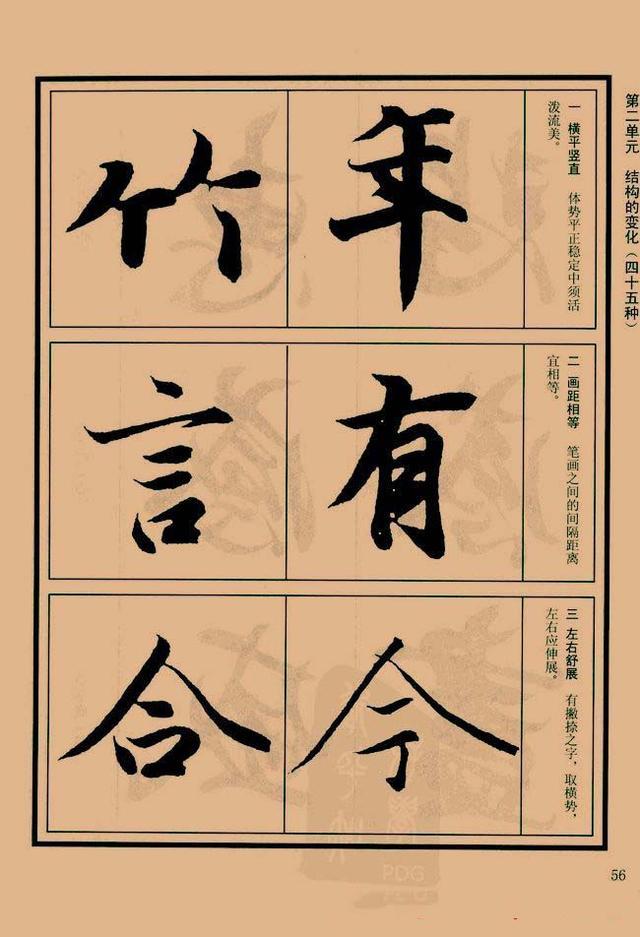 第二单元 结构的变化（四十五种）
一 横平竖直 体势平正稳定中须活
泼流美。
年
竹
二 画距相等 笔画之间的间隔距离
宜相等。
有
言
三 左右舒展 有撇捺之字，取横势，
左右应伸展。
今
合
56
PDG